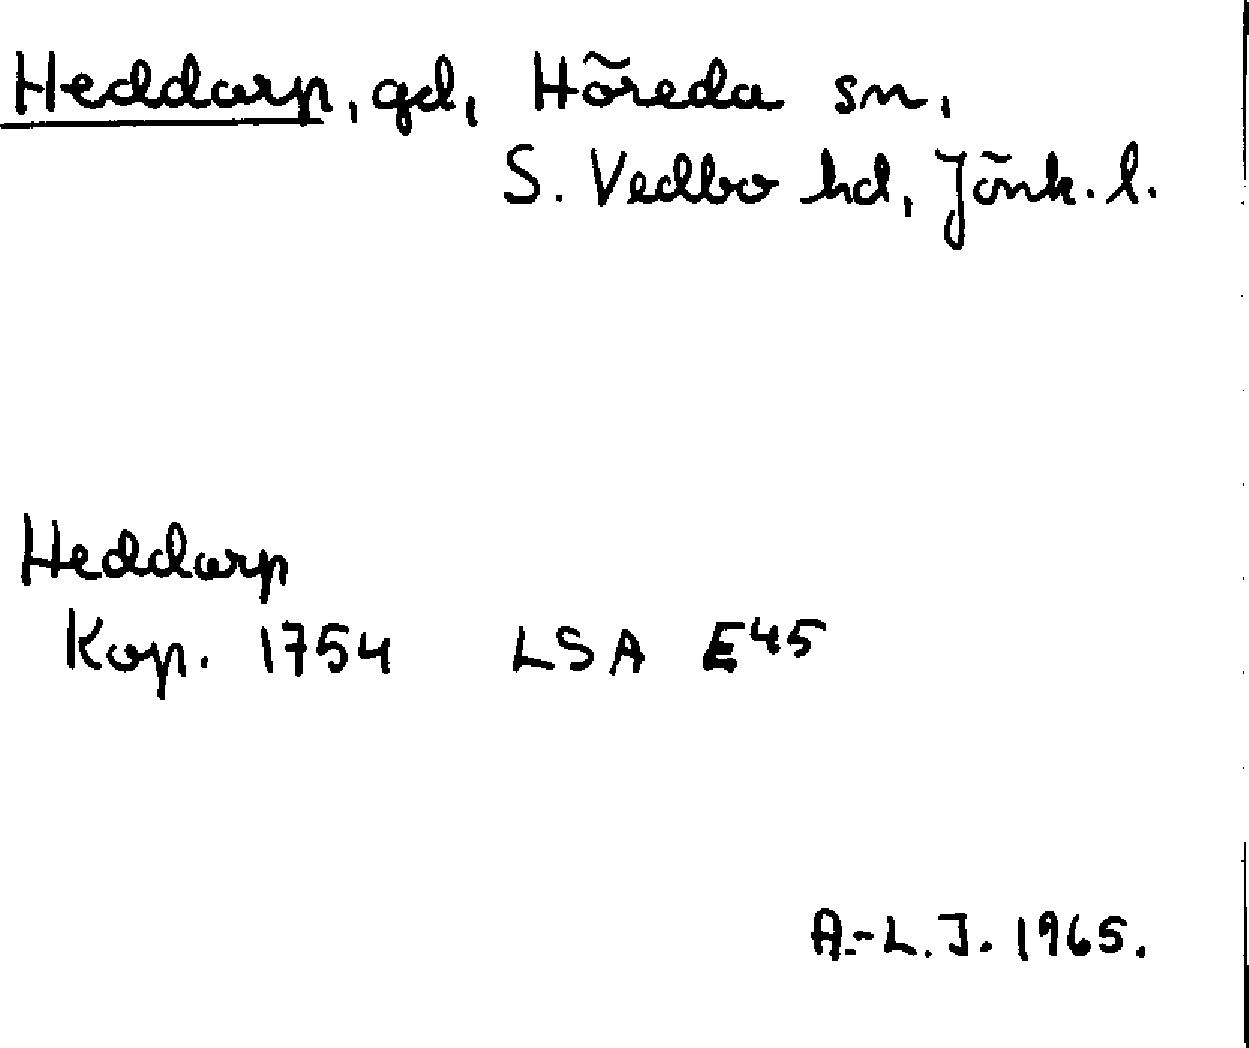 Heddarp, gd, Höreda sn,
S. Vedbo hd, Jönk. l.
Heddarp
Kop. 1754 LSA E45
A.-L.J. 1965.